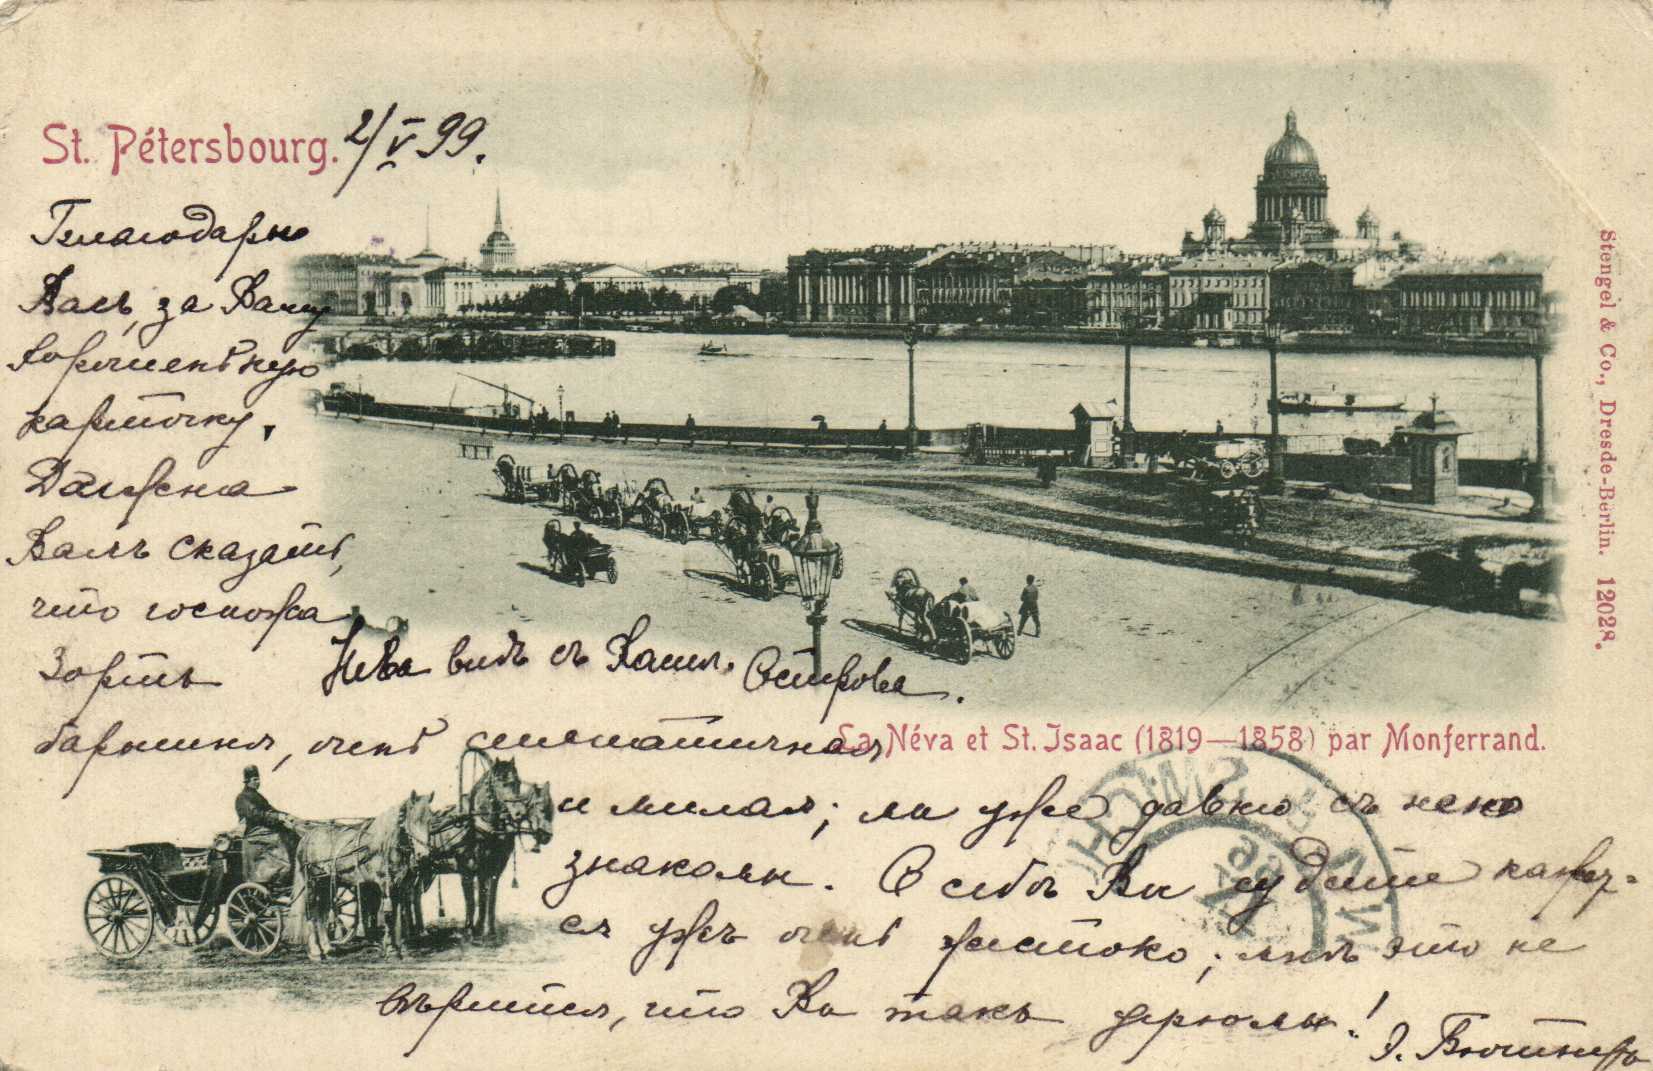 St. Pétersbourg. 2/V 99.
Благодарю
Васъ, за Вашу
хорошенькую
карточку,
Должна
Вамъ сказать,
что госпожа
Зортъ
Нева видъ съ Васил. Острова.
барышня, очень симпатичная
La Néva et St. Isaac (1819—1858) par Monferrand.
и милая; мы уже давно съ нею
знакомы. О себѣ Вы судите кажет-
ся ужъ очень жестоко; мнѣ это не
вѣрится, что Вы такъ
Э. Бютнеръ
Stengel & Co., Dresde-Berlin. 12028.